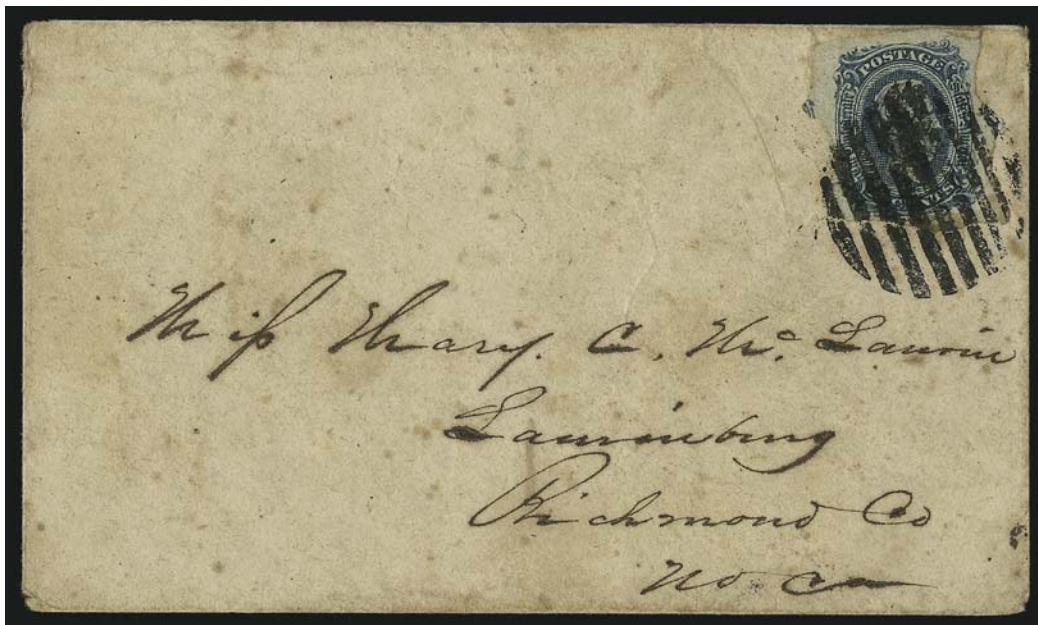 POSTAGE
Miss Mary. C. Mc. Laurin
Laurinburg
Richmond Co
No Ca